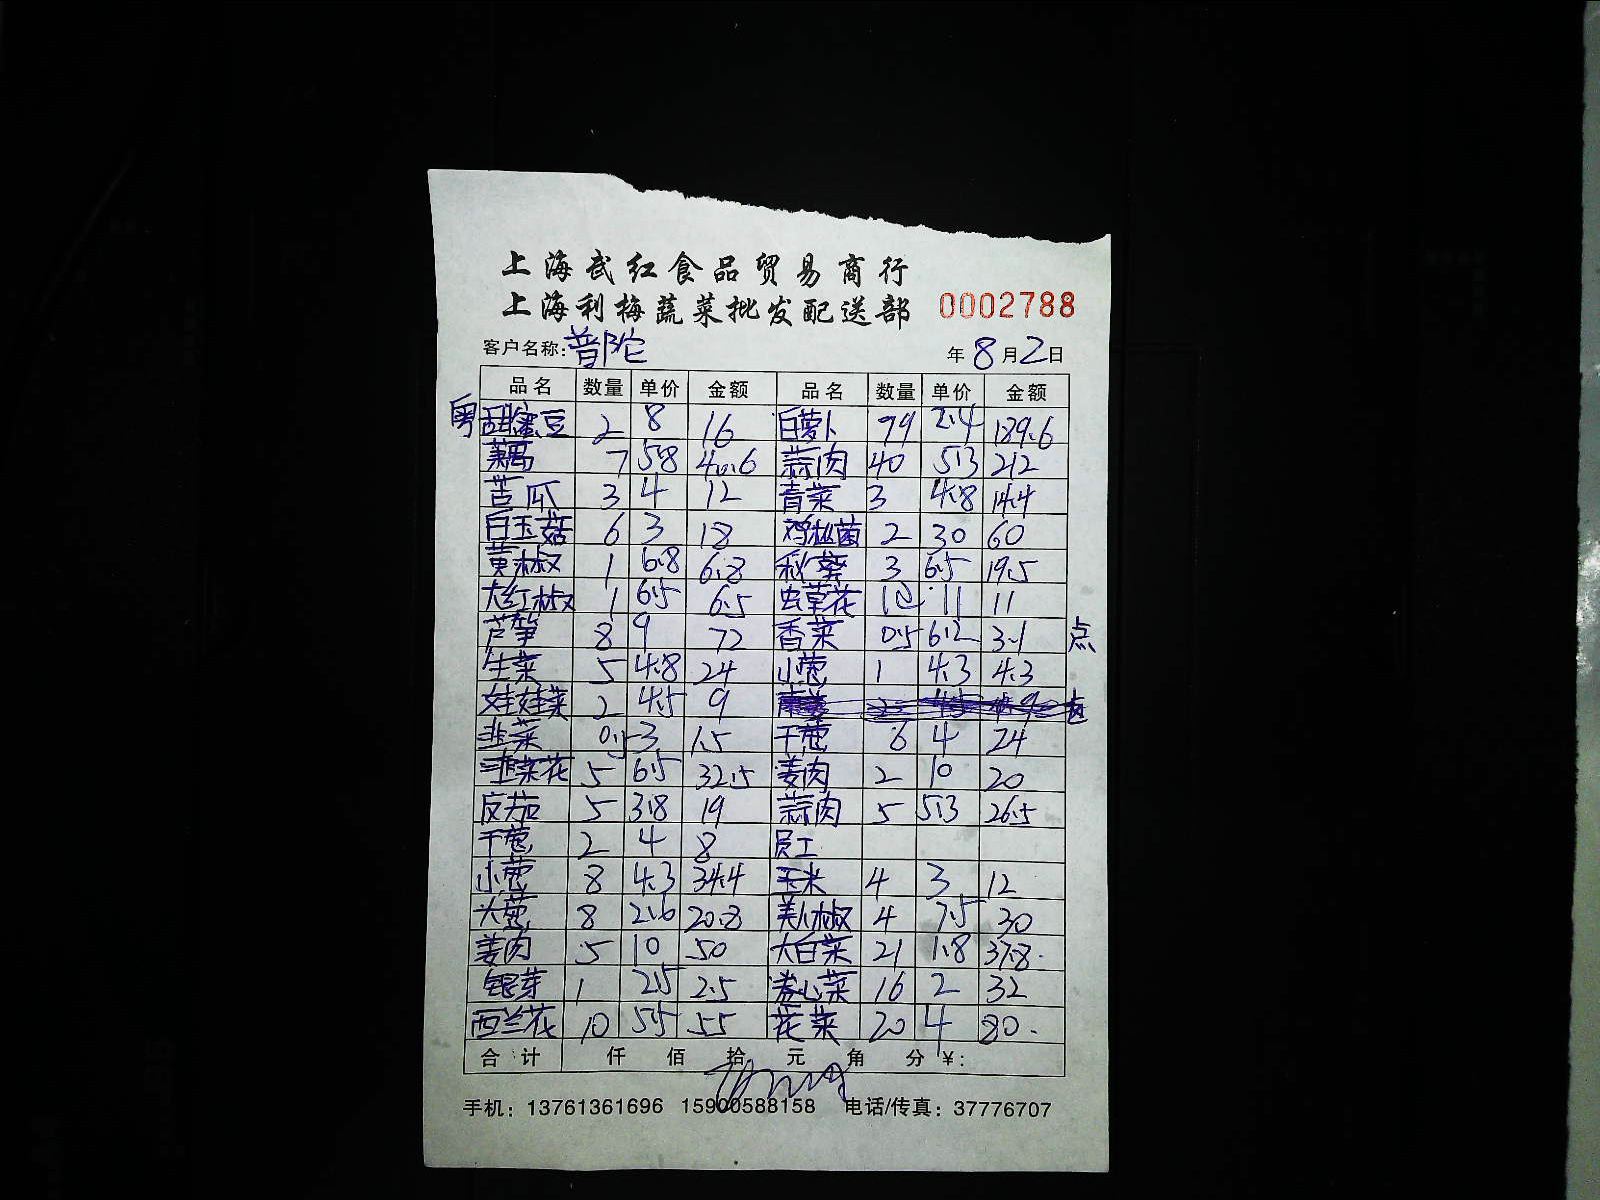 上海武红食品贸易商行
上海利梅蔬菜批发配送部 0002788
客户名称：普陀 年 8 月 2 日
品名 数量 单价 金额 品名 数量 单价 金额
粤 甜蜜豆 2 8 16 白萝卜 79 2.4 189.6
莲藕 7 5.8 40.6 蒜肉 40 5.3 212
苦瓜 3 4 12 青菜 3 4.8 14.4
白玉菇 6 3 18 鸡枞菌 2 30 60
黄椒 1 6.8 6.8 秋葵 3 6.5 19.5
大红椒 1 6.5 6.5 虫草花 1 11 11
芦笋 8 9 72 香菜 0.5 6.2 3.1 点
生菜 5 4.8 24 小葱 1 4.3 4.3
娃娃菜 2 4.5 9
韭菜 0.5 3 1.5 干葱 6 4 24
韭菜花 5 6.5 32.5 姜肉 2 10 20
皮茄 5 3.8 19 蒜肉 5 5.3 26.5
干葱 2 4 8 员工
小葱 8 4.3 34.4 玉米 4 3 12
大葱 8 2.6 20.8 美人椒 4 7.5 30
姜肉 5 10 50 大白菜 21 1.8 37.8
银芽 1 2.5 2.5 卷心菜 16 2 32
西兰花 10 5.5 55 花菜 20 4 80
合计 仟 佰 拾 元 角 分 ¥：
手机：13761361696 15900588158 电话/传真：37776707